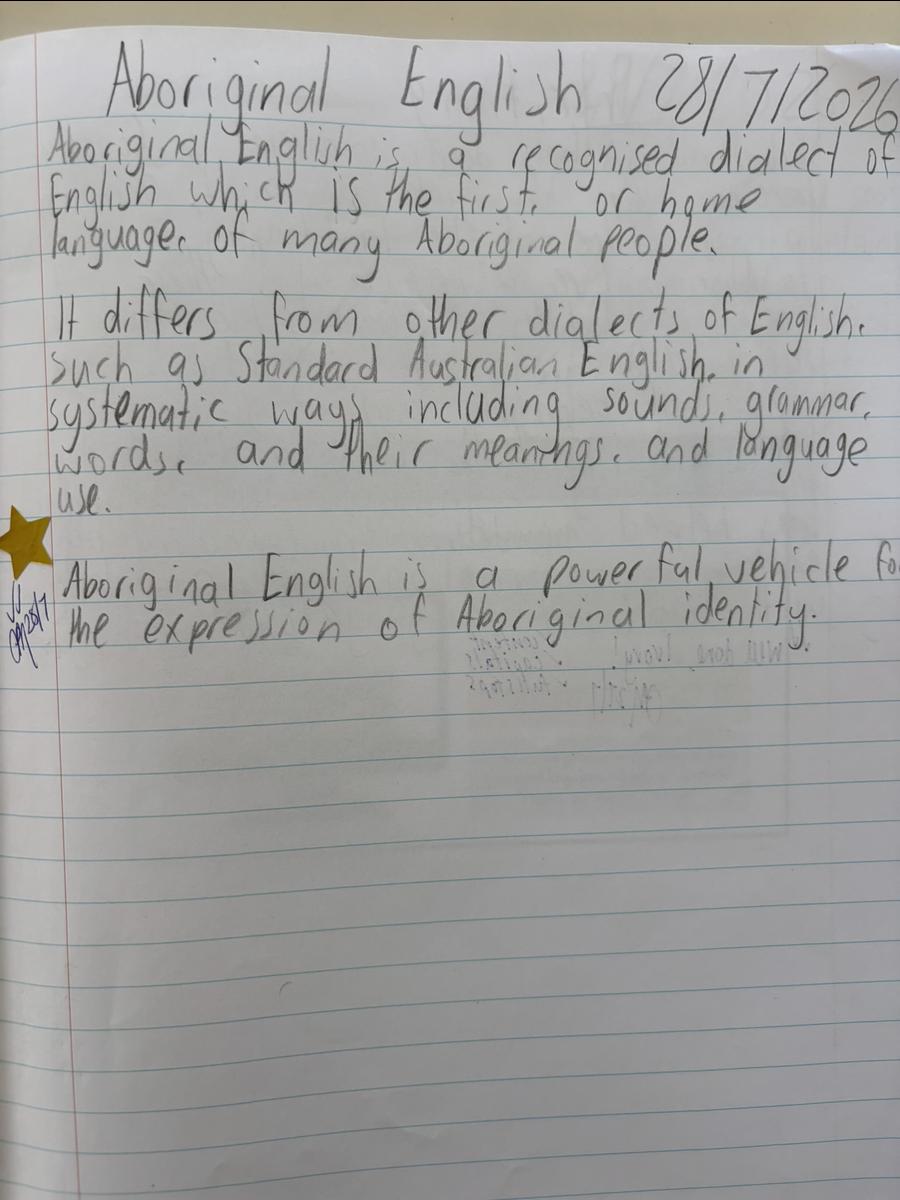 Aboriginal English 28/7/2026
Aboriginal English is a recognised dialect of
English which is the first, or home
language, of many Aboriginal people.
It differs from other dialects of English,
such as Standard Australian English, in
systematic ways including sounds, grammar,
words, and their meanings, and language
use.
Aboriginal English is a powerful vehicle fo
the expression of Aboriginal identity.
28/7